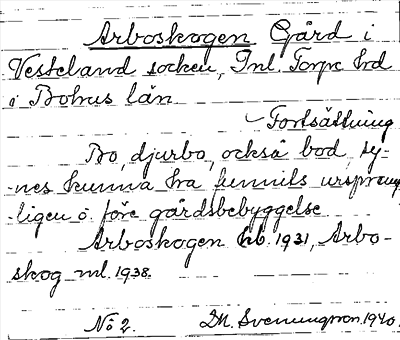 Arboskogen Gård i
Vesteland socken, Inl. Torpe hd
i Bohus län
Fortsättning
Bo, djurbo, också bod, sy-
-nes kunna ha funnits ursprung
-ligen å före gårdsbebyggelse
Arboskogen hb. 1931, Arbo-
skog ml. 1938.
No 2. M. Svenungsson. 1940.